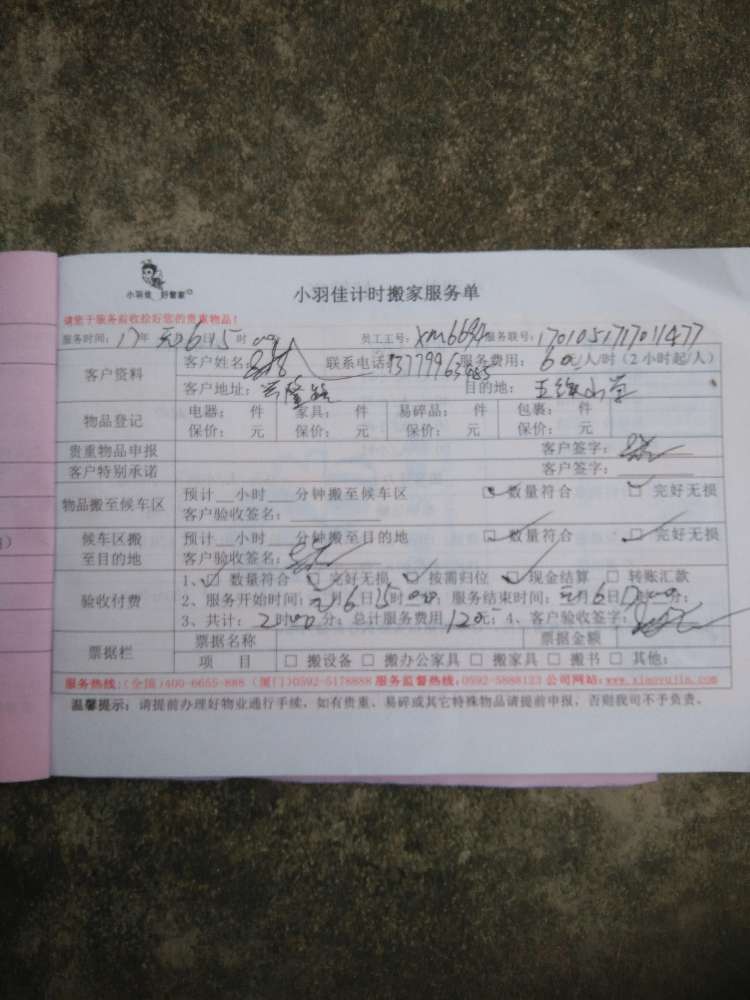 小羽佳 好管家
小羽佳计时搬家服务单
请您于服务前收捡好您的贵重物品！
服务时间：17年 元月6日15时 00 员工工号：xm6694 服务联号：1701051717011477
客户资料 客户姓名： 联系电话：13779963985 服务费用：60元/人/时（2小时起/人）
客户地址：兴隆路 目的地：五缘小学
物品登记 电器： 件 家具： 件 易碎品： 件 包裹： 件
保价： 元 保价： 元 保价： 元 保价： 元
贵重物品申报 客户签字：
客户特别承诺 客户签字：
物品搬至候车区 预计__小时___分钟搬至候车区 ☑ 数量符合 ☑ 完好无损
客户验收签名：
候车区搬至目的地 预计__小时___分钟搬至目的地 ☑ 数量符合 ☑ 完好无损
客户验收签名：
验收付费 1、☑ 数量符合 ☑ 完好无损 ☑ 按需归位 ☑ 现金结算 □ 转账汇款
2、服务开始时间：元月6日15时00分，服务结束时间：元月6日17时00分；
3、共计：2时00分；总计服务费用120元；4、客户验收签字：
票据栏 票据名称 票据金额
项 目 □ 搬设备 □ 搬办公家具 □ 搬家具 □ 搬书 □ 其他：
服务热线：(全国)400-6655-888 (厦门)0592-5178888 服务监督热线：0592-5888123 公司网站：www.xiaoyujia.com
温馨提示：请提前办理好物业通行手续，如有贵重、易碎或其它特殊物品请提前申报，否则我司不予负责。